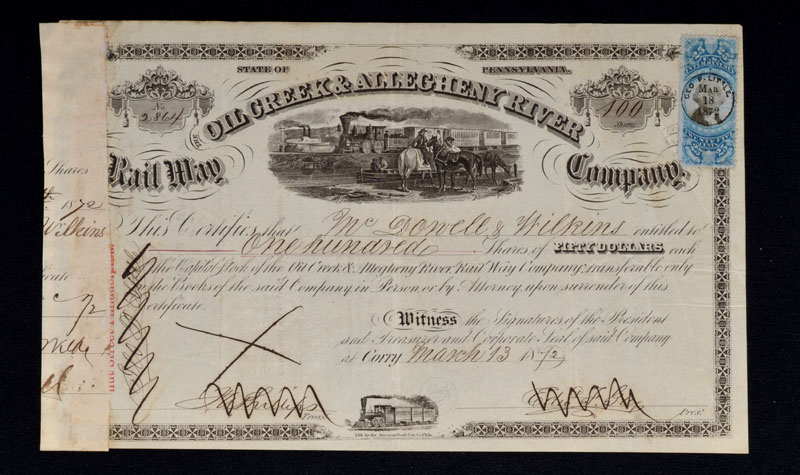 STATE OF PENNSYLVANIA.
No. 2864
THE OIL CREEK & ALLEGHENY RIVER
100
Shares
GEO. F. LITTLE
MAR
18
1872
Rail Way Company,
Shares
1872
Wilkins
72
This Certifies that Mc Dowell & Wilkins entitled to
One hundred Shares of FIFTY DOLLARS each
in the Capital Stock of the Oil Creek & Allegheny River Rail Way Company, transferable only
on the Books of the said Company in Person or by Attorney, upon surrender of this
Certificate.
Witness the Signatures of the President
and Treasurer and Corporate Seal of said Company
at Corry March 13 1872
Treas.
Pres.t